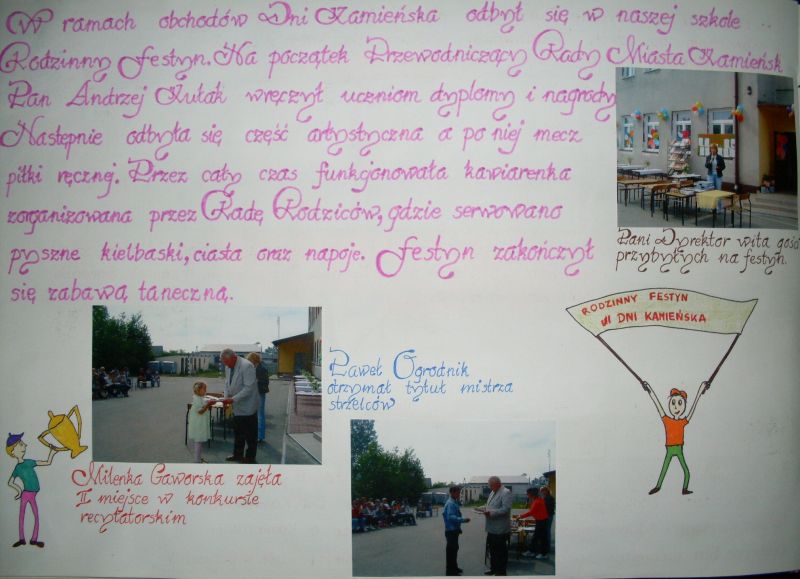 W ramach obchodów Dni Kamieńska odbył się w naszej szkole
Rodzinny Festyn. Na początek Przewodniczący Rady Miasta Kamieńsk
Pan Andrzej Kułak wręczył uczniom dyplomy i nagrody
Następnie odbyła się część artystyczna a po niej mecz
piłki ręcznej. Przez cały czas funkjonowała kawiarenka
zorganizowana przez Radę Rodziców, gdzie serwowano
pyszne kielbaski, ciasta oraz napoje. Festyn zakończył
się zabawą taneczną.
Pani Dyrektor wita gości
przybyłych na festyn.
RODZINNY FESTYN
VI DNI KAMIEŃSKA
Paweł Ogrodnik
otrzymał tytuł mistrza
strzelców
Milenka Gaworska zajęła
II miejsce w konkursie
recytatorskim